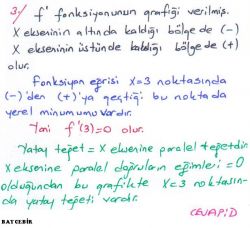 3/ f' fonksiyonunun grafiği verilmiş.
X ekseninin altında kaldığı bölgede (-)
X ekseninin üstünde kaldığı bölgede (+)
olur.
Fonksiyon eğrisi x=3 noktasında
(-)'den (+)'ya geçtiği bu noktada
yerel minimumu vardır.
Yani f'(3)=0 olur.
Yatay teğet = X eksenine paralel teğetdir
X eksenine paralel doğruların eğimleri =0
olduğundan bu grafikte X=3 noktasın-
da yatay teğeti vardır.
CEVAP: D
BAYCEBİR